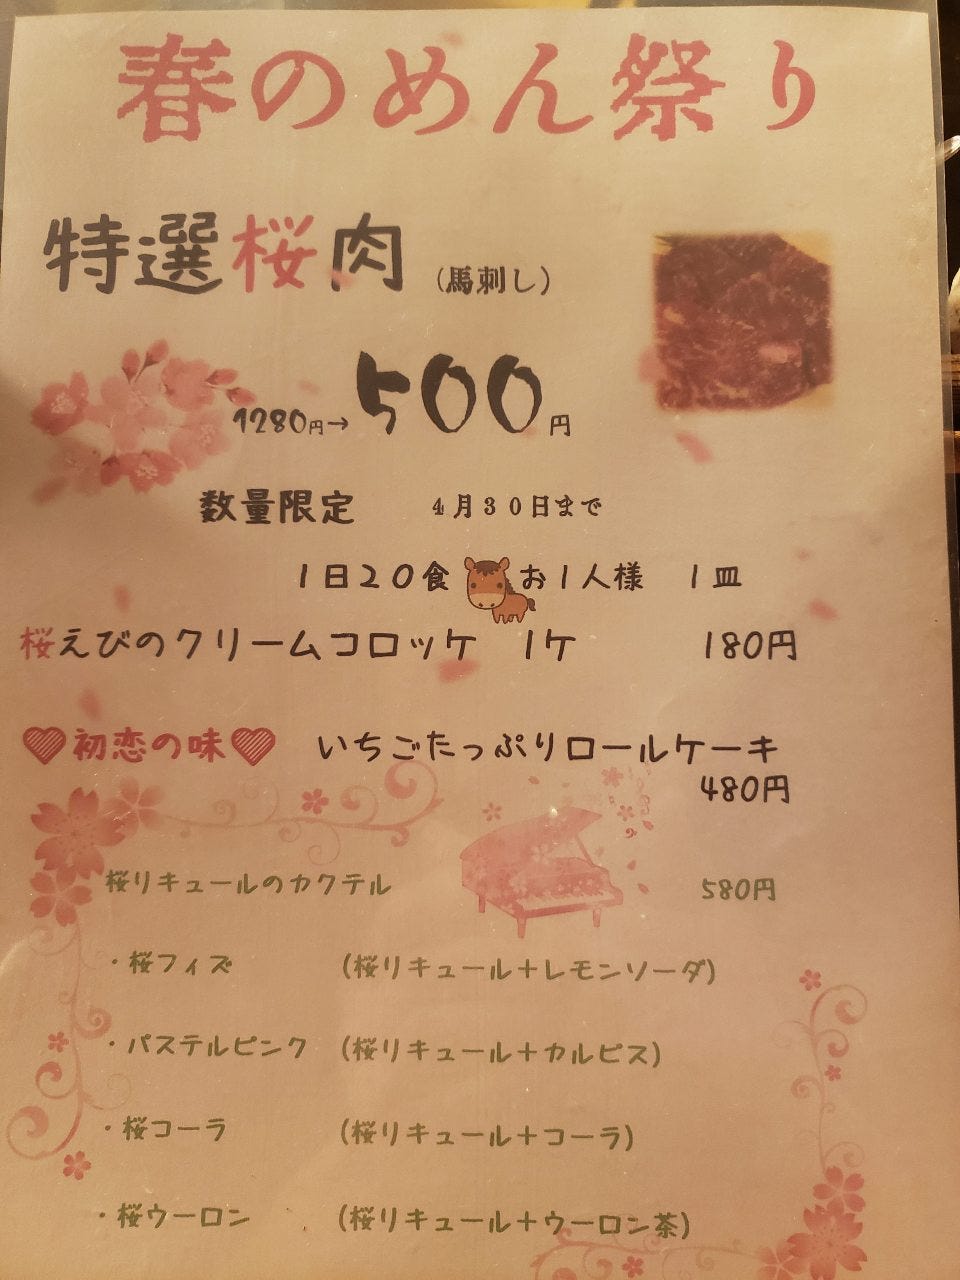 春のめん祭り
特選桜肉 （馬刺し）
1280円→500円
数量限定 ４月３０日まで
１日２０食 お１人様 １皿
桜えびのクリームコロッケ 1ケ 180円
♥初恋の味♥ いちごたっぷりロールケーキ
480円
桜リキュールのカクテル 580円
・桜フィズ (桜リキュール＋レモンソーダ)
・パステルピンク (桜リキュール＋カルピス)
・桜コーラ (桜リキュール＋コーラ)
・桜ウーロン (桜リキュール＋ウーロン茶)